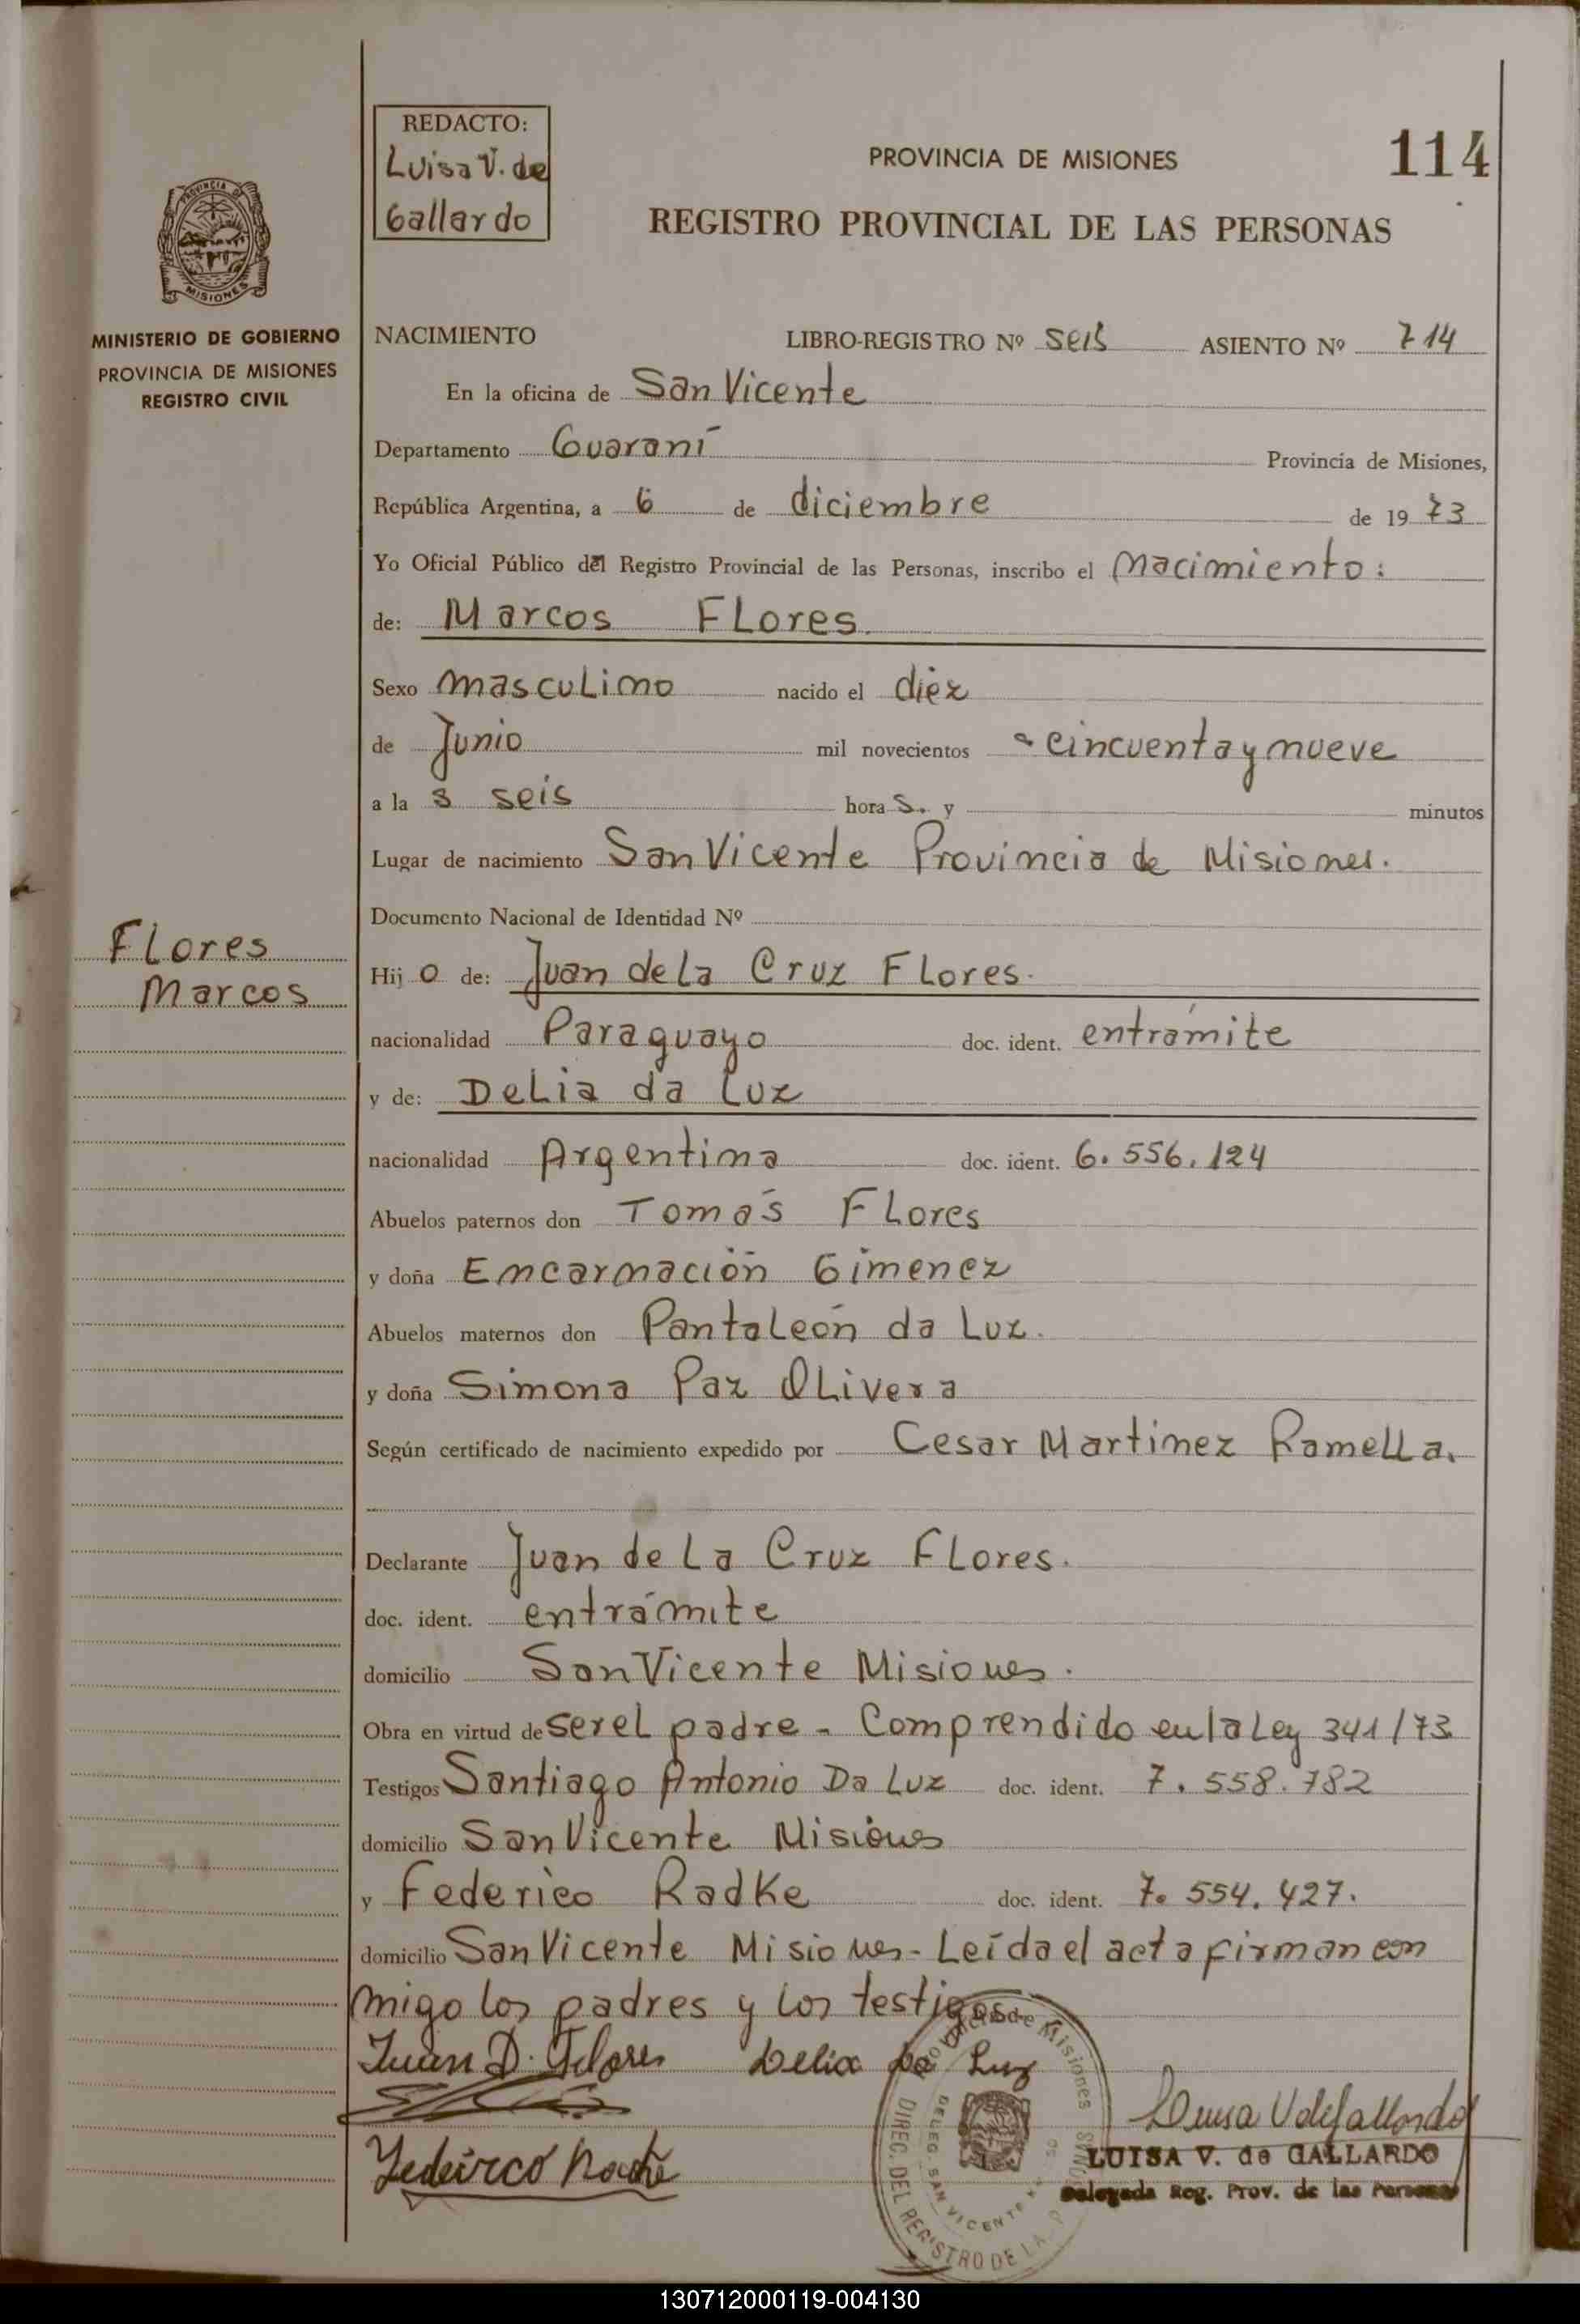 REDACTO:
Luisa V. de
Gallardo
PROVINCIA DE MISIONES
114
REGISTRO PROVINCIAL DE LAS PERSONAS
PROVINCIA DE
MISIONES
MINISTERIO DE GOBIERNO
PROVINCIA DE MISIONES
REGISTRO CIVIL
NACIMIENTO LIBRO-REGISTRO Nº seis ASIENTO Nº 714
En la oficina de San Vicente
Departamento Guaraní Provincia de Misiones,
República Argentina, a 6 de diciembre de 1973
Yo Oficial Público del Registro Provincial de las Personas, inscribo el nacimiento:
de: Marcos Flores.
Sexo masculino nacido el diez
de Junio mil novecientos cincuenta y nueve
a la s seis hora s. y minutos
Lugar de nacimiento San Vicente Provincia de Misiones.
Documento Nacional de Identidad Nº
Flores
Marcos
Hij o de: Juan de la Cruz Flores.
nacionalidad Paraguayo doc. ident. entrámite
y de: Delia da Luz
nacionalidad Argentina doc. ident. 6.556.124
Abuelos paternos don Tomás Flores
y doña Encarnación Gimenez
Abuelos maternos don Pantaleón da Luz.
y doña Simona Paz Olivera
Según certificado de nacimiento expedido por Cesar Martinez Ramella.
Declarante Juan de La Cruz Flores.
doc. ident. entrámite
domicilio San Vicente Misiones.
Obra en virtud de ser el padre - Comprendido en la Ley 341/73
Testigos Santiago Antonio Da Luz doc. ident. 7.558.782
domicilio San Vicente Misiones
y Federico Radke doc. ident. 7.554.427.
domicilio San Vicente Misiones - Leída el acta firman con
migo los padres y los testigos.
Juan D. Flores Delia Da Luz
Luisa V de Gallardo
Federico Radke
LUISA V. de GALLARDO
Delegada Reg. Prov. de las Personas
Provincia de Misiones
DIREC. DEL REGISTRO DE LA
DELEG. SAN VICENTE
130712000119-004130